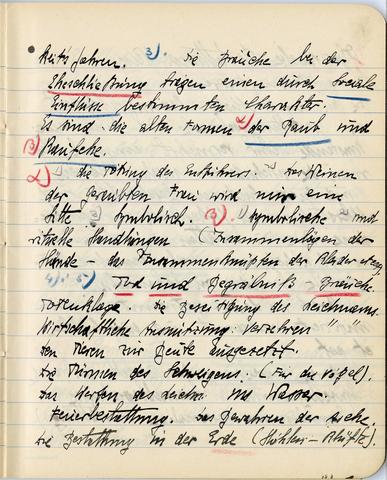 Jahren. 3). Die Bräuche bei der
Eheschließung tragen einen durch soziale
Einflüsse bestimmten Charakter.
Es sind die alten Formen der Raub und
Kaufehe.
die des Entführers. Das Weinen
der geraubten Frau wird nur eine
Sitte symbolisch. 3). symbolische und
rituelle Handlungen (Zusammenlegen der
Hände – das Zusammenknüpfen der Kleider etc.
Tod und Begräbniß – Bräuche
Totenklage. Die Beseitigung des Leichnams.
Wirtschaftliche Verzehren " "
Den Tieren zur Beute ausgesetzt.
Die des Schweigens. (Für die Vögel).
Das Werfen des Leichn. ins Wasser.
Feuerbestattung. Das Bewahren der
Die Bestattung in der Erde (Höhlen –